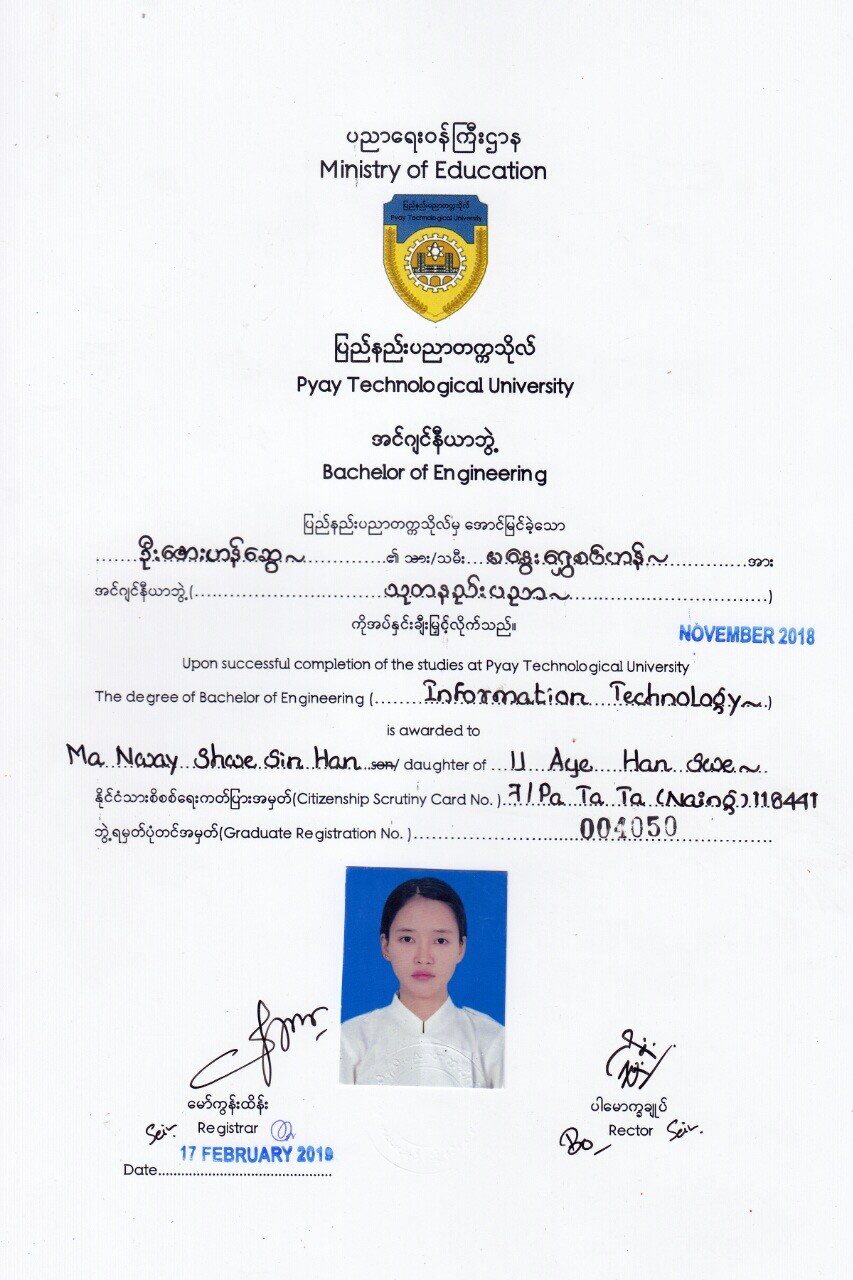 ပညာရေးဝန်ကြီးဌာန
Ministry of Education
ပြည်နည်းပညာတက္ကသိုလ်
Pyay Technological University
ပြည်နည်းပညာတက္ကသိုလ်
Pyay Technological University
အင်ဂျင်နီယာဘွဲ့
Bachelor of Engineering
ပြည်နည်းပညာတက္ကသိုလ်မှ အောင်မြင်ခဲ့သော
ဦးအေးဟန်ဆွေ ~ ၏ သား/သမီး မနွေးရွှေစင်ဟန် ~ အား
အင်ဂျင်နီယာဘွဲ့ (သုတနည်းပညာ ~)
ကိုအပ်နှင်းချီးမြှင့်လိုက်သည်။
NOVEMBER 2018
Upon successful completion of the studies at Pyay Technological University
The degree of Bachelor of Engineering (Information Technology ~)
is awarded to
Ma Nway Shwe Sin Han son/ daughter of U Aye Han Swe ~
နိုင်ငံသားစိစစ်ရေးကတ်ပြားအမှတ်(Citizenship Scrutiny Card No. ) 7/Pa Ta Ta (Naing) 118441
ဘွဲ့ရမှတ်ပုံတင်အမှတ်(Graduate Registration No. ) 004050
မော်ကွန်းထိန်း
Registrar
17 FEBRUARY 2019
Date
ပါမောက္ခချုပ်
Rector